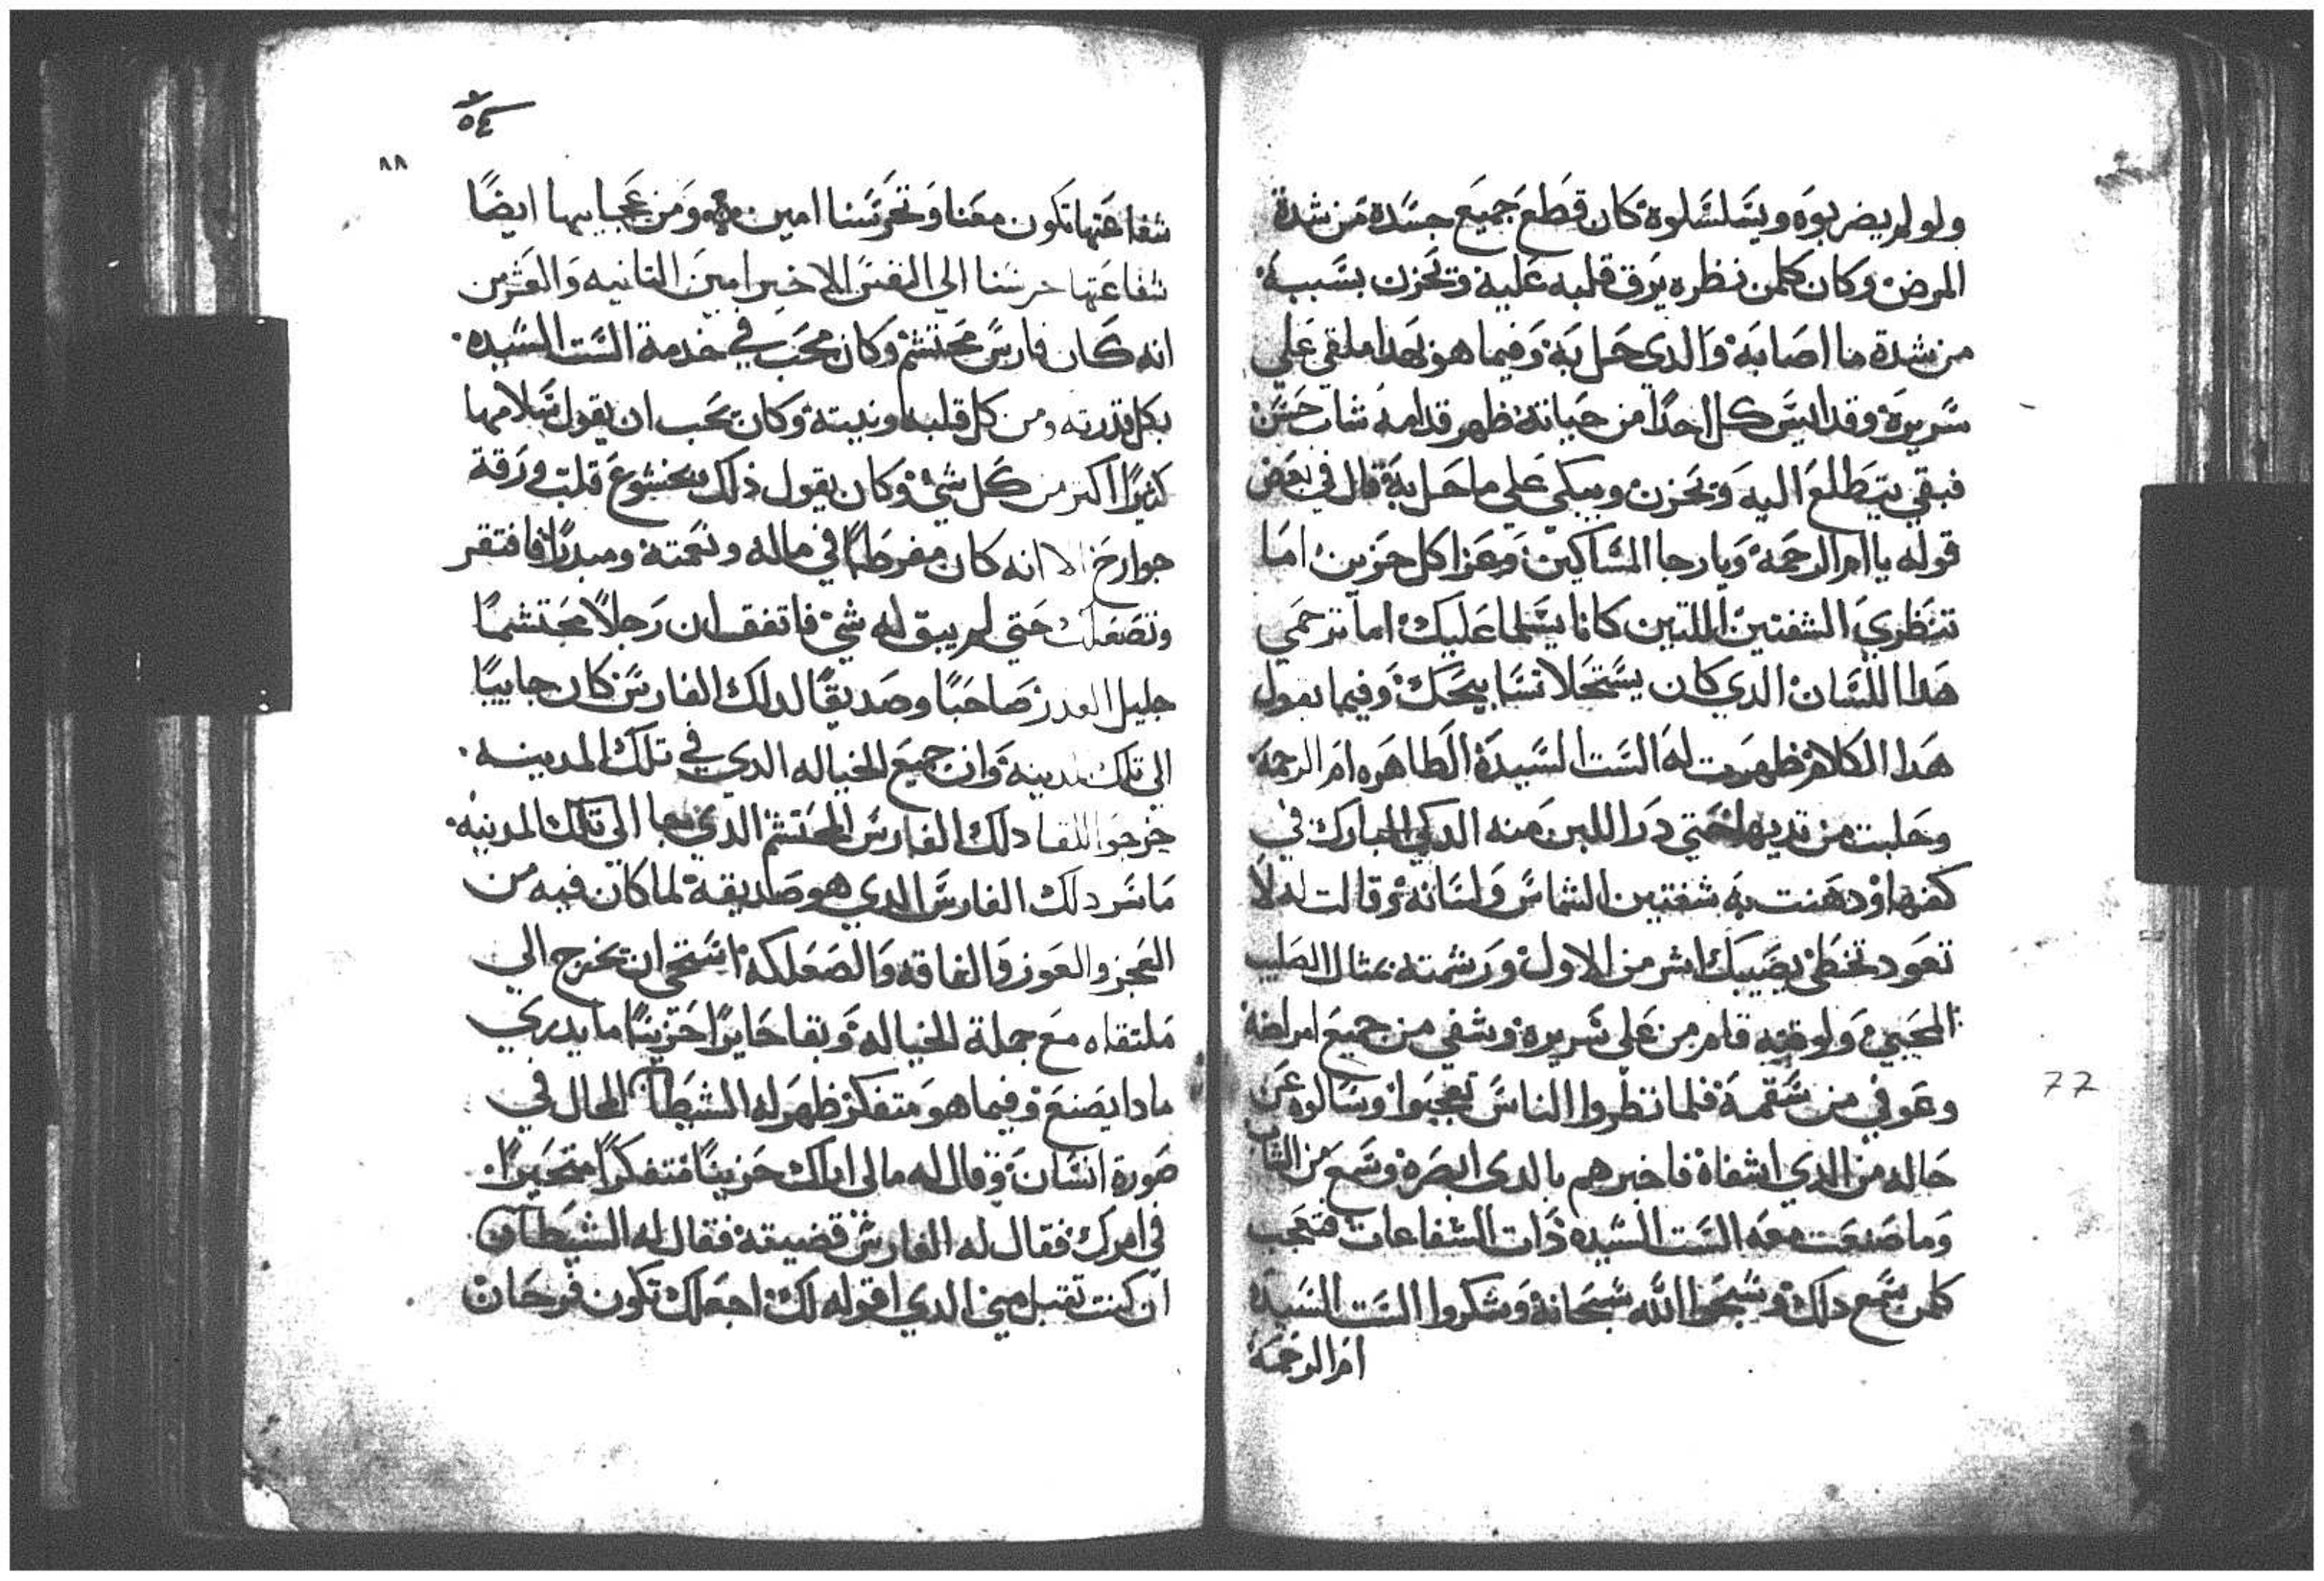 ولو لم يضربوه ويسلسلوه كان قطع جميع جسده من شدة
المرض وكان كلمن نظره يرق قلبه عليه وتحزن بسببه
من شدة ما اصابه والدي حل به وفيما هو نهدا ملقي علي
سريره وقد ايس كل احدا من حياته ظهر قدامه شاب حسن
فبقي يتطلع اليه وتحزن ويبكي علي ما حل به قال في بعض
قوله يا ام الرحمة ويا رجا المساكين وعزا كل حزين اما
تنظري الشفتين اللتين كانا يسلما عليك اما ترحمي
هدا اللسان الدي كان يستحلا تسابيحك وفيما يقول
هدا الكلام ظهرت له الست السيدة الطاهره ام الرحمة
وحلبت من تديها حتي درا اللبن منه الدكي المبارك في
كفها ودهنت به شفتين الشماس ولسانه وقالت له لا
تعود تخطي يصيبك اشر من الاول ورشمته بمتال الصليب
المحيي ولوقته قام من علي سريره وشفي من جميع امراضه
وعوفي من سقمه فلما نظروا الناس تعجبوا وسالوه عن
حاله من الدي اشفاه فاخبرهم بالدي ابصره وسمع من الشاب
وما صنعت معه الست السيده ذات الشفاعات فتعجب
كلمن سمع دلك وسبحوا الله سبحانه وشكروا الست السيدة
ام الرحمة
77
٥٤
٨٨
شفاعتها تكون معنا وتحرسنا امين ومن عجايبها ايضًا
شفاعتها حرسنا الي النفس الاخير امين التانيه والعشرين
انه كان فارس محتشم وكان محب في خدمة الست السيده
بكل قدرته ومن كل قلبه ونيته وكان يحب ان يقول سلامها
كتيرًا اكتر من كل شي وكان يقول ذلك بخشوع قلب ورقة
جوارح الا انه كان مفرطًا في ماله ونعمته ومبدرًا فافتقر
وتصعلك حتي لم يبق له شي فاتفق ان رجلا محتشمًا
جليل القدر صاحبًا وصديقًا لدلك الفارس كان جاييًا
الي تلك المدينة وان جميع الخياله الدي في تلك المدينه
خرجوا للقا دلك الفارس المحتشم الدي جا الي تلك المدينه
ما سر دلك الفارس الدي هو صديقه لما كان فيه من
العجز والعوز والفاقه والصعلكه استحي ان يخرج الي
ملتقاه مع جملة الخياله وبقا حايرًا حزينًا ما يدري
مادا يصنع وفيما هو متفكر ظهر له الشيطان المحال في
صورة انسان وقال له مالي اراك حزينًا متفكرًا متحيرًا
في امرك فقال له الفارس قضيته فقال له الشيطان
ان كنت تقبل مني الدي اقوله لك اجعلك تكون فرحان